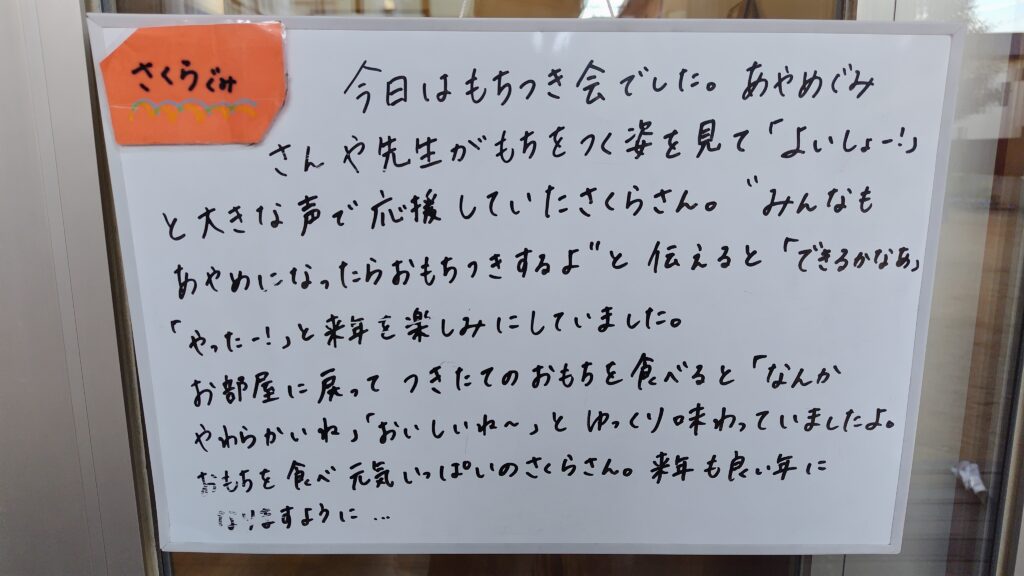 さくらぐみ
今日はもちつき会でした。あやめぐみ
さんや先生がもちをつく姿を見て「よいしょー!」
と大きな声で応援していたさくらさん。"みんなも
あやめになったらおもちつきするよ"と伝えると「できるかなあ」
「やったー!」と来年を楽しみにしていました。
お部屋に戻ってつきたてのおもちを食べると「なんか
やわらかいね」「おいしいね〜」とゆっくり味わっていましたよ。
おもちを食べ元気いっぱいのさくらさん。来年も良い年に
なりますように…